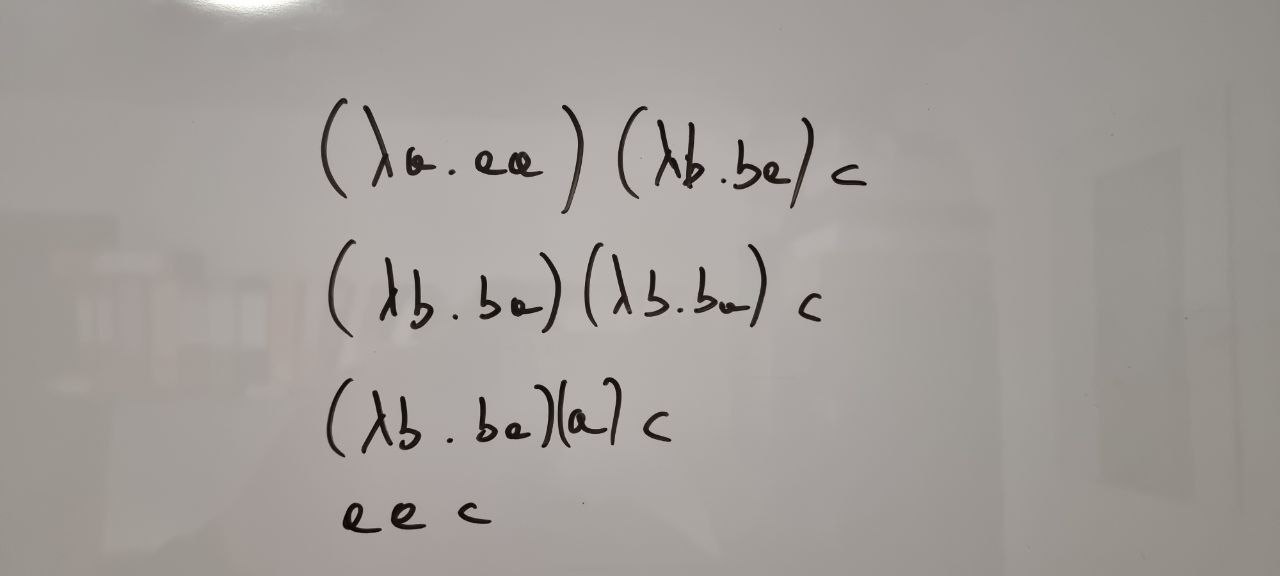 (λa.aa) (λb.ba) c
(λb.ba)(λb.ba) c
(λb.ba)(a) c
aa c